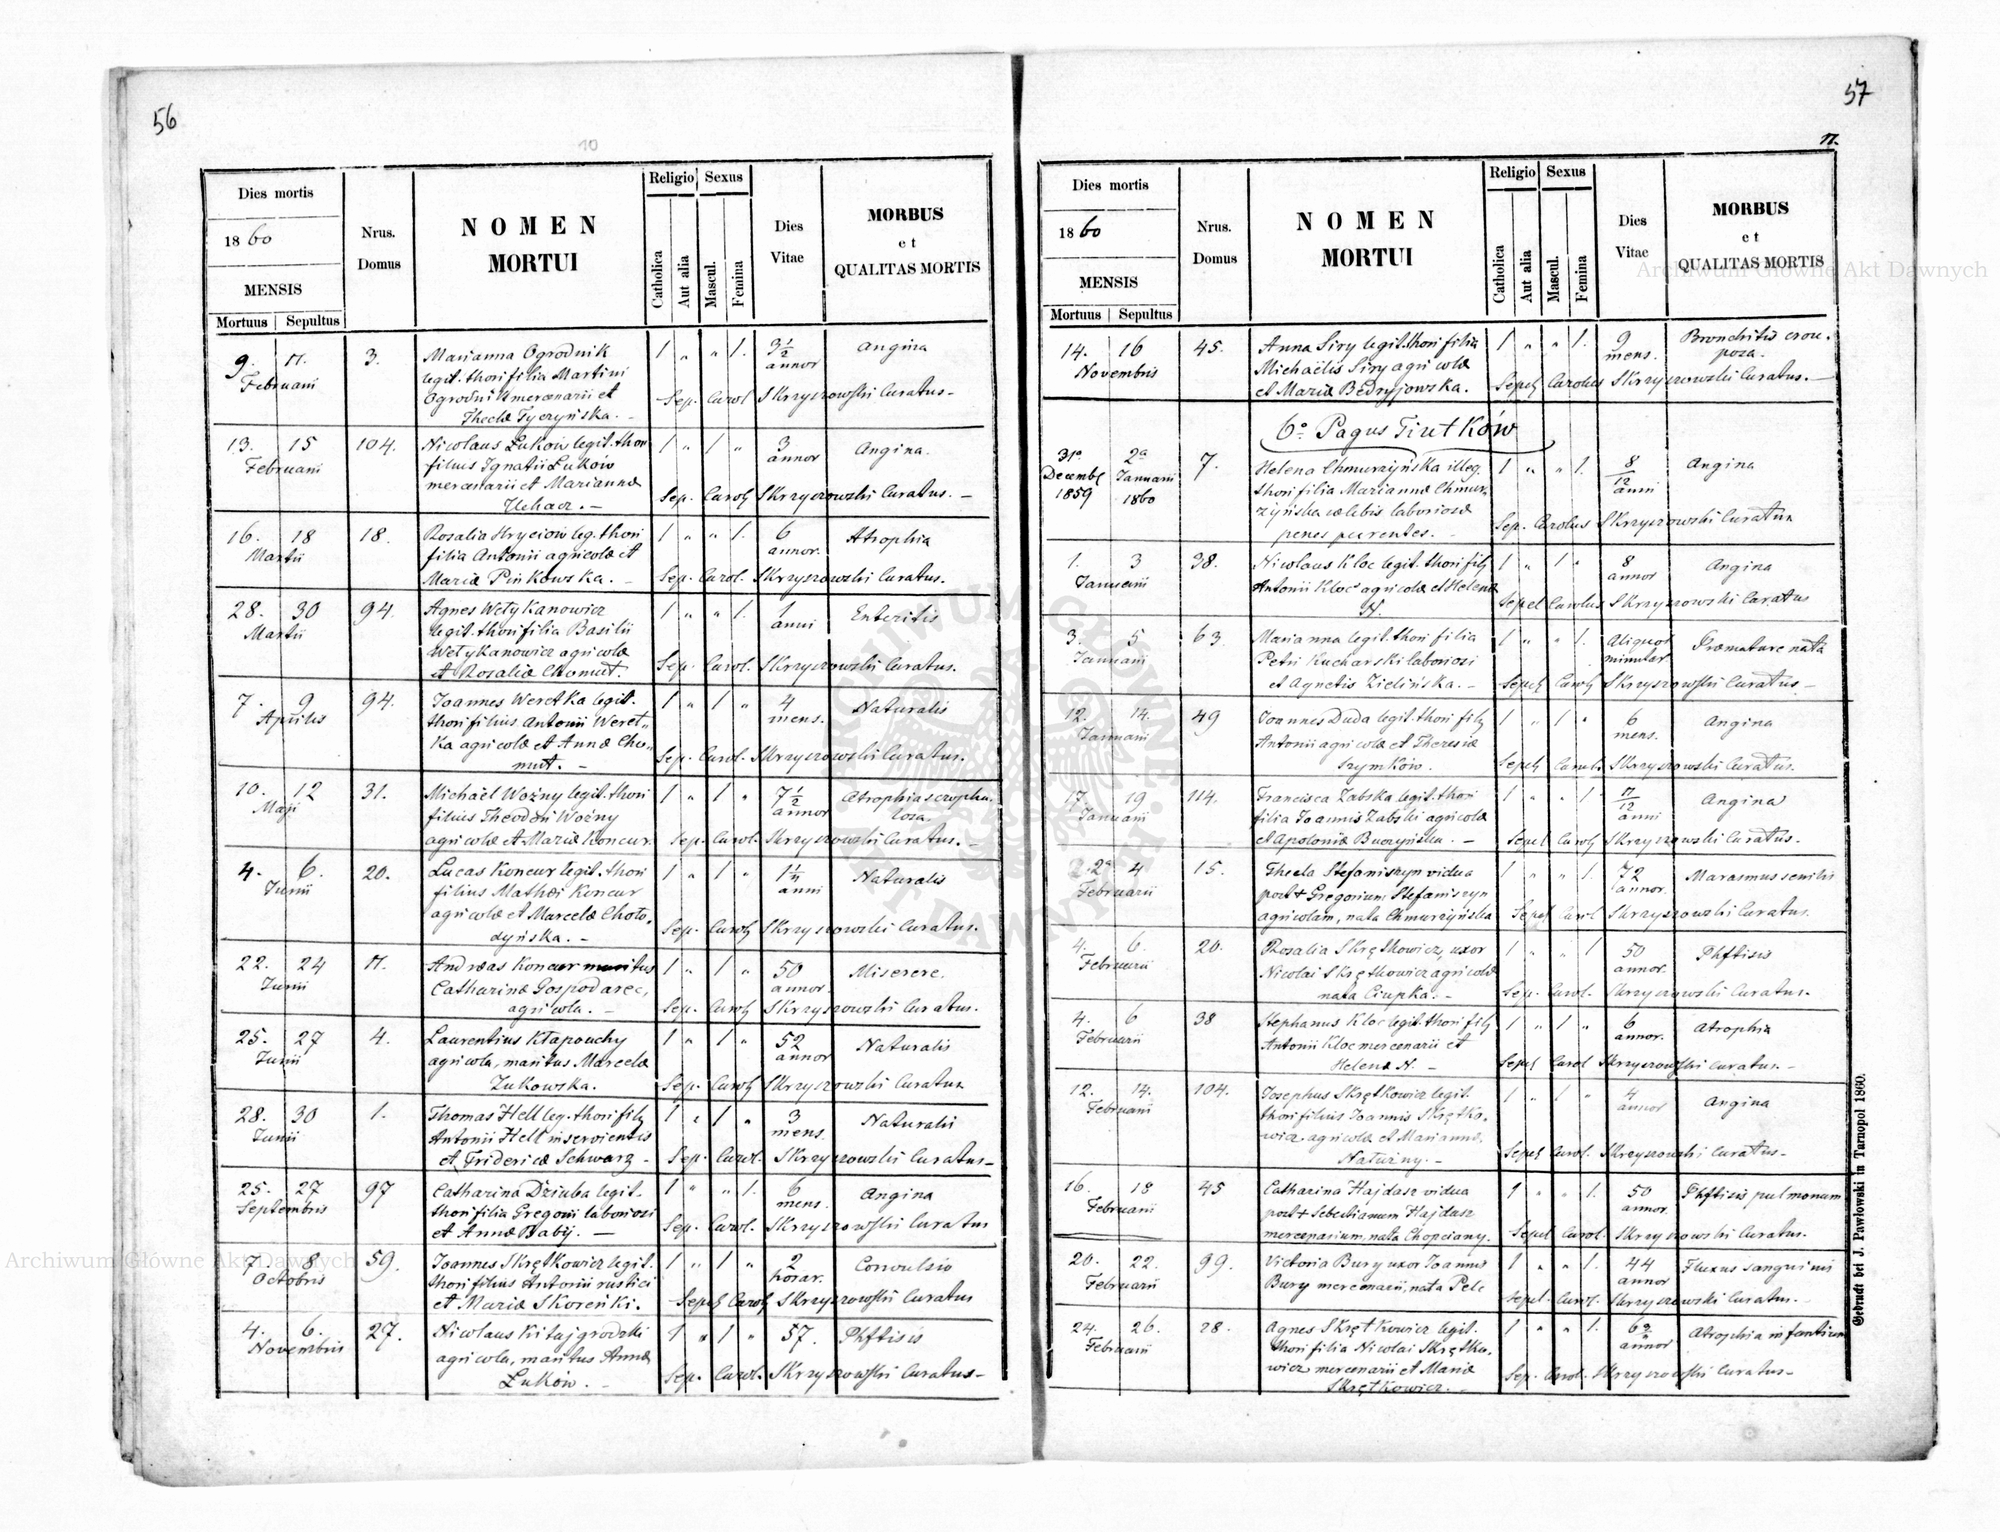 56
10
Dies mortis
1860
MENSIS
Mortuus Sepultus
Nrus. Domus
NOMEN
MORTUI
Religio Sexus
Catholica Aut alia Mascul. Femina
Dies Vitae
MORBUS
et
QUALITAS MORTIS
9. 11. 3. Marianna Ogrodnik 1 „ „ 1. 3 1/2 Angina
Februarii legit. thori filia Martini annor
Ogrodnik mercenarii et Sep. Carol Skrzyszowski Curatus.
Thecla Tyczyńska.
13. 15 104. Nicolaus Łuków legit. thori 1 „ 1 „ 3 Angina.
Februarii filius Ignatii Łuków annor
mercenarii et Marianna Sep. Carol Skrzyszowski Curatus.
16. 18 18. Rosalia Hryciow leg. thori 1 „ „ 1. 6 Atrophia
Martii filia Antonii agricolæ et annor.
Mariæ Pińkowska. Sep. Carol. Skrzyszowski Curatus.
28. 30 94. Agnes Wetykanowicz 1 „ „ 1. 1 Enteritis
Martii legit. thori filia Basilii anni
Wetykanowicz agricolæ
et Rosaliæ Chomut. Sep. Carol. Skrzyszowski Curatus.
7. 9 94. Joannes Weretka legit. 1 „ 1 „ 4 Naturalis
Aprilis thori filius Antonii Weret- mens.
ka agricolæ et Annæ Cho-
mut. Sep. Carol. Skrzyszowski Curatus.
10. 12 31. Michaël Woźny legit. thori 1 „ 1 „ 7 1/2 Atrophia scrophu-
Maji filius Theodori Woźny annor losa.
agricolæ et Mariæ Koncur. Sep. Carol. Skrzyszowski Curatus.
4. 6. 20. Lucas Koncur legit. thori 1 „ 1 „ Naturalis
Junii filius Mathæi Koncur anni
agricolæ et Marcelæ Choło-
dyńska. Sep. Carol Skrzyszowski Curatus.
22. 24 11. Andreas Koncur maritus 1 „ 1 „ 50 Miserere.
Junii Catharinæ Gospodarec, annor.
agricola. Sep. Carol Skrzyszowski Curatus.
25. 27 4. Laurentius Kłapouchy 1 „ 1 „ 52 Naturalis
Junii agricola, maritus Marcelæ annor
Żukowska. Sep. Carol Skrzyszowski Curatus
28. 30 1. Thomas Hell leg. thori fily 1 „ 1 „ 3 Naturalis
Junii Antonii Hell inservientis mens.
et Fridericæ Schwarz Sep. Carol. Skrzyszowski Curatus
25. 27 97 Catharina Dziuba legit. 1 „ „ 1. 6 Angina
Septembris thori filia Gregorii laboriosi mens.
et Annæ Babij. Sep. Carol. Skrzyszowski Curatus
7. 8 59. Joannes Skrętkowicz legit. 1 „ 1 „ 2 Convulsio
Octobris thori filius Antonii rustici horar.
et Mariæ Skoreńki. Sepel Carol Skrzyszowski Curatus
4. 6. 27. Nicolaus Kitajgrodzki 1 „ 1 „ 57. Phftisis
Novembris agricola, maritus Annæ
Łuków. Sep. Carol. Skrzyszowski Curatus
57
11.
Dies mortis
1860
MENSIS
Mortuus Sepultus
Nrus. Domus
NOMEN
MORTUI
Religio Sexus
Catholica Aut alia Mascul. Femina
Dies Vitae
MORBUS
et
QUALITAS MORTIS
14. 16 45. Anna Siry legit. thori filia 1 „ „ 1. 9 Bronchitis crou-
Novembris Michaëlis Siry agricolæ mens. posa.
et Mariæ Bedryjowska. Sepel Carolus Skrzyszowski Curatus.
6o Pagus Tiutków
31a 2a 7. Helena Chmurzyńska illeg. 1 „ „ 1. 8/12 Angina
Decembr Januarii thori filia Mariannæ Chmur- anni
1859 1860 zyńska cælebis laboriosæ Sep. Carolus Skrzyszowski Curatus
penes parentes.
1. 3 38. Nicolaus Kloc legit. thori fily 1 „ 1 „ 8 Angina
Januarii Antonii Kloc agricolæ et Helenæ annor
N. Sepel Carolus Skrzyszowski Curatus
3. 5 63. Marianna legit. thori filia 1 „ „ 1. Aliquot Præmature nata
Januarii Petri Kucharski laboriosi minutar
et Agnetis Zielińska. Sepel Carol Skrzyszowski Curatus
12. 14. 49 Joannes Duda legit. thori fily 1 „ 1 „ 6 Angina
Januarii Antonii agricolæ et Theresiæ mens.
Szymków. Sepel Carol. Skrzyszowski Curatus.
17. 19 114. Francisca Zabska legit. thori 1 „ „ 1 11/12 Angina
Januarii filia Joannis Zabski agricolæ anni
et Apoloniæ Buczyńska. Sepel Carol Skrzyszowski Curatus.
2a 4 15. Thecla Stefaniszyn vidua 1 „ „ 1. 72 Marasmus senilis
Februarii post + Gregorium Stefaniszyn annor.
agricolam, nata Chmurzyńska Sepel Carol Skrzyszowski Curatus.
4. 6. 20. Rosalia Skrętkowicz, uxor 1 „ „ 1 50 Phftisis
Februarii Nicolai Skrętkowicz agricolæ annor.
nata Ciupka. Sep. Carol. Skrzyszowski Curatus.
4. 6 38 Stephanus Kloc legit. thori fily 1 „ 1 „ 6 Atrophia
Februarii Antonii Kloc mercenarii et annor.
Helenæ N. Sepel Carol Skrzyszowski Curatus.
12. 14. 104. Josephus Skrętkowicz legit. 1 „ 1 „ 4 Angina
Februarii thori filius Joannis Skrętko- annor
wicz agricolæ et Mariannæ
Naturzny. Sepel Carol. Skrzyszowski Curatus
16. 18 45 Catharina Hajdasz vidua 1 „ „ 1. 50 Phftisis pulmonum
Februarii post + Sebastianum Hajdasz annor.
mercenarium, nata Chopciany. Sepel Carol. Skrzyszowski Curatus.
20. 22. 99. Victoria Bury uxor Joannis 1 „ „ 1. 44 Fluxus sanguinis
Februarii Bury mercenarii, nata Pelc annor
Sepel. Carol. Skrzyszowski Curatus.
24. 26. 28. Agnes Skrętkowicz legit. 1 „ „ 1. Atrophia infantium
Februarii thori filia Nicolai Skrętko- annor
wicz mercenarii et Mariæ
Skrętkowicz. Sep. Carol. Skrzyszowski Curatus
Gedruckt bei J. Pawłowski in Tarnopol 1860.
Archiwum Główne Akt Dawnych
Archiwum Główne Akt Dawnych
ARCHIWUM GŁÓWNE AKT DAWNYCH